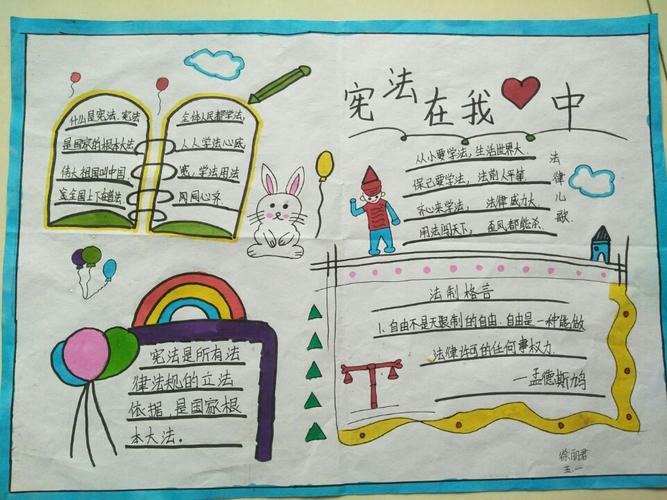 宪法在我中
什么是宪法,宪法
是国家的根本大法
伟大祖国叫中国
全国上下
全体人民都学法,
人人学法心底
宽,学法用法
心齐.
法律儿歌
从小要学法,生活世界大.
保己要学法,法前人平等
齐心来学法,法律威力大.
用法闯天下,歪风都能杀.
法制格言
1.自由不是无限制的自由.自由是一种能做
法律许可的任何事权力.
—孟德斯鸠
宪法是所有法
律法规的立法
依据,是国家根
本大法.
徐丽君
五.一